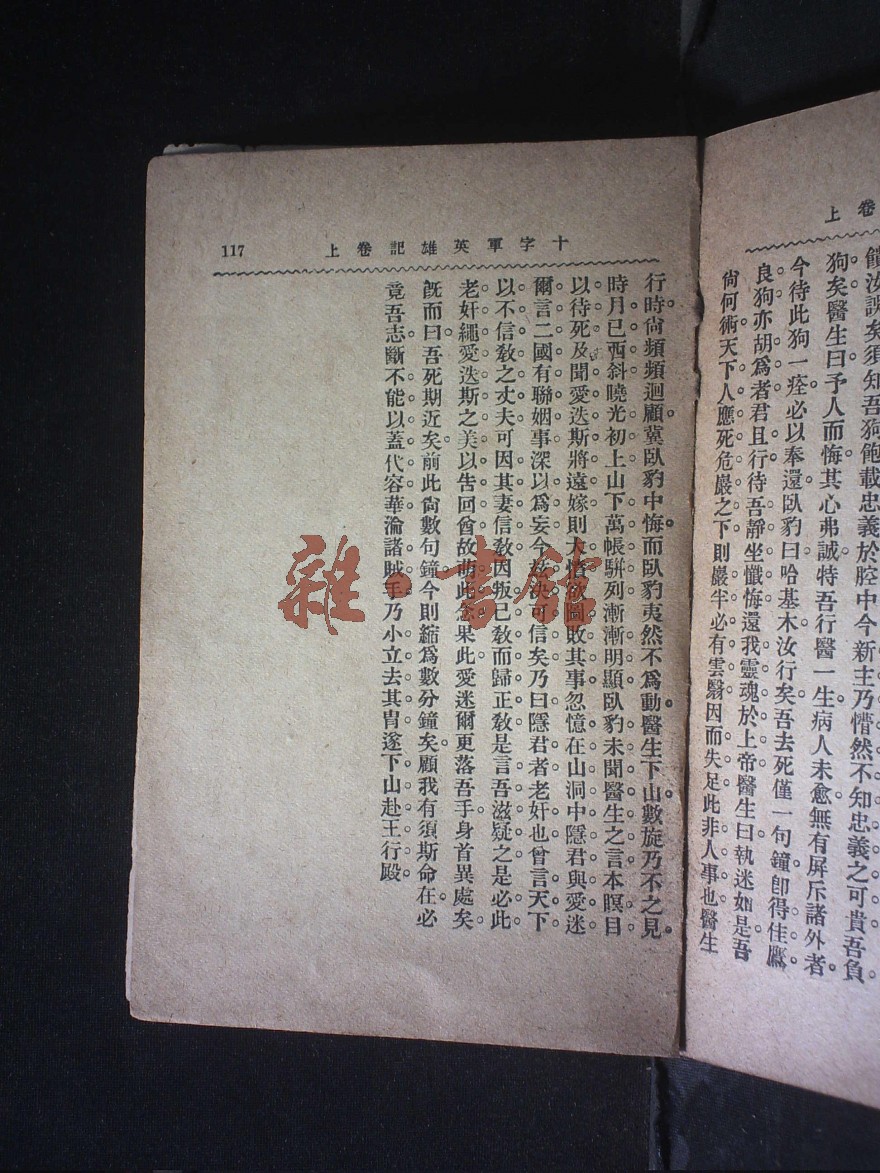 上卷
饋汝誤矣須知吾狗飽載忠義於腔中今新主乃懵然不知忠義之可貴吾負
狗矣醫生曰予人而悔其心弗誠特吾行醫一生病人未愈無有屏斥諸外者
今待此狗一痊必以奉還臥豹曰哈基木汝行矣吾去死僅一句鐘卽得佳鷹
良狗亦胡爲者君且行待吾靜坐懺悔還我靈魂於上帝醫生曰執迷如是吾
尙何術天下人應死危巖之下則巖半必有雲翳因而失足此非人事也醫生
十字軍英雄記卷上
117
行時尙頻頻迴顧冀臥豹中悔而臥豹夷然不爲動醫生下山數旋乃不之見
時月已西斜曉光初上山下萬帳駢列漸漸明顯臥豹未聞醫生之言本瞑目
以待死及聞愛迭斯將遠嫁則大憤欲圖敗其事忽憶在山洞中隱君與愛迷
爾言二國有聯姻事深以爲妄今始決可信矣乃曰隱君者老奸也曾言天下
以不信教之丈夫可因其妻信教因叛已教而歸正教是言吾滋疑之是必此
老奸繩愛迭斯之美以告回酋故萌此念果此愛迷爾更落吾手身首異處矣
旣而曰吾死期近矣前此尙數句鐘今則縮爲數分鐘矣顧我有須斯命在必
竟吾志斷不能以蓋代容華淪諸賊手乃小立去其冑遂下山赴王行殿
雜·書館